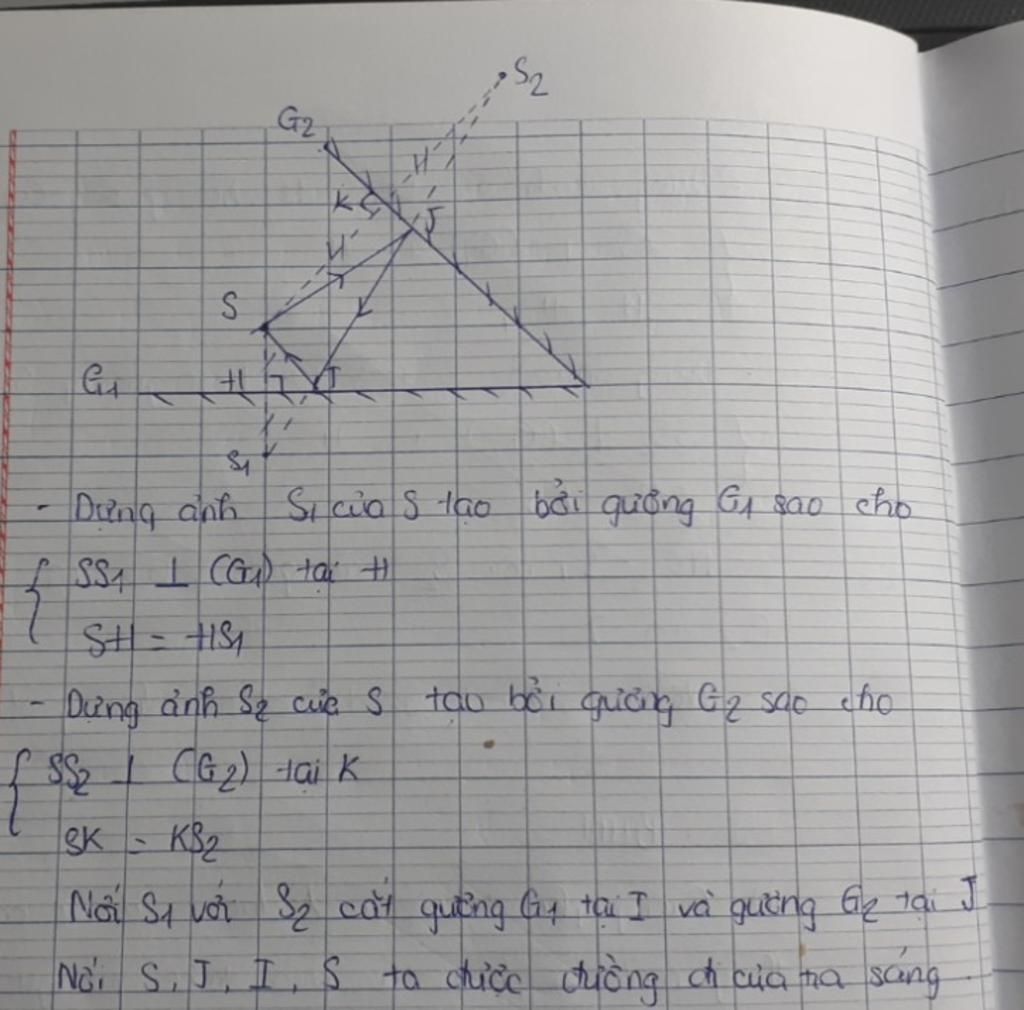 S2
G2
K
J
S
G1
H
I
S1
- Dựng ảnh S1 của S tạo bởi gương G1 sao cho
SS1 ⊥ (G1) tại H
SH = HS1
- Dựng ảnh S2 của S tạo bởi gương G2 sao cho
SS2 ⊥ (G2) tại K
SK = KS2
Nối S1 với S2 cắt gương G1 tại I và gương G2 tại J
Nối S, J, I, S ta được đường đi của tia sáng